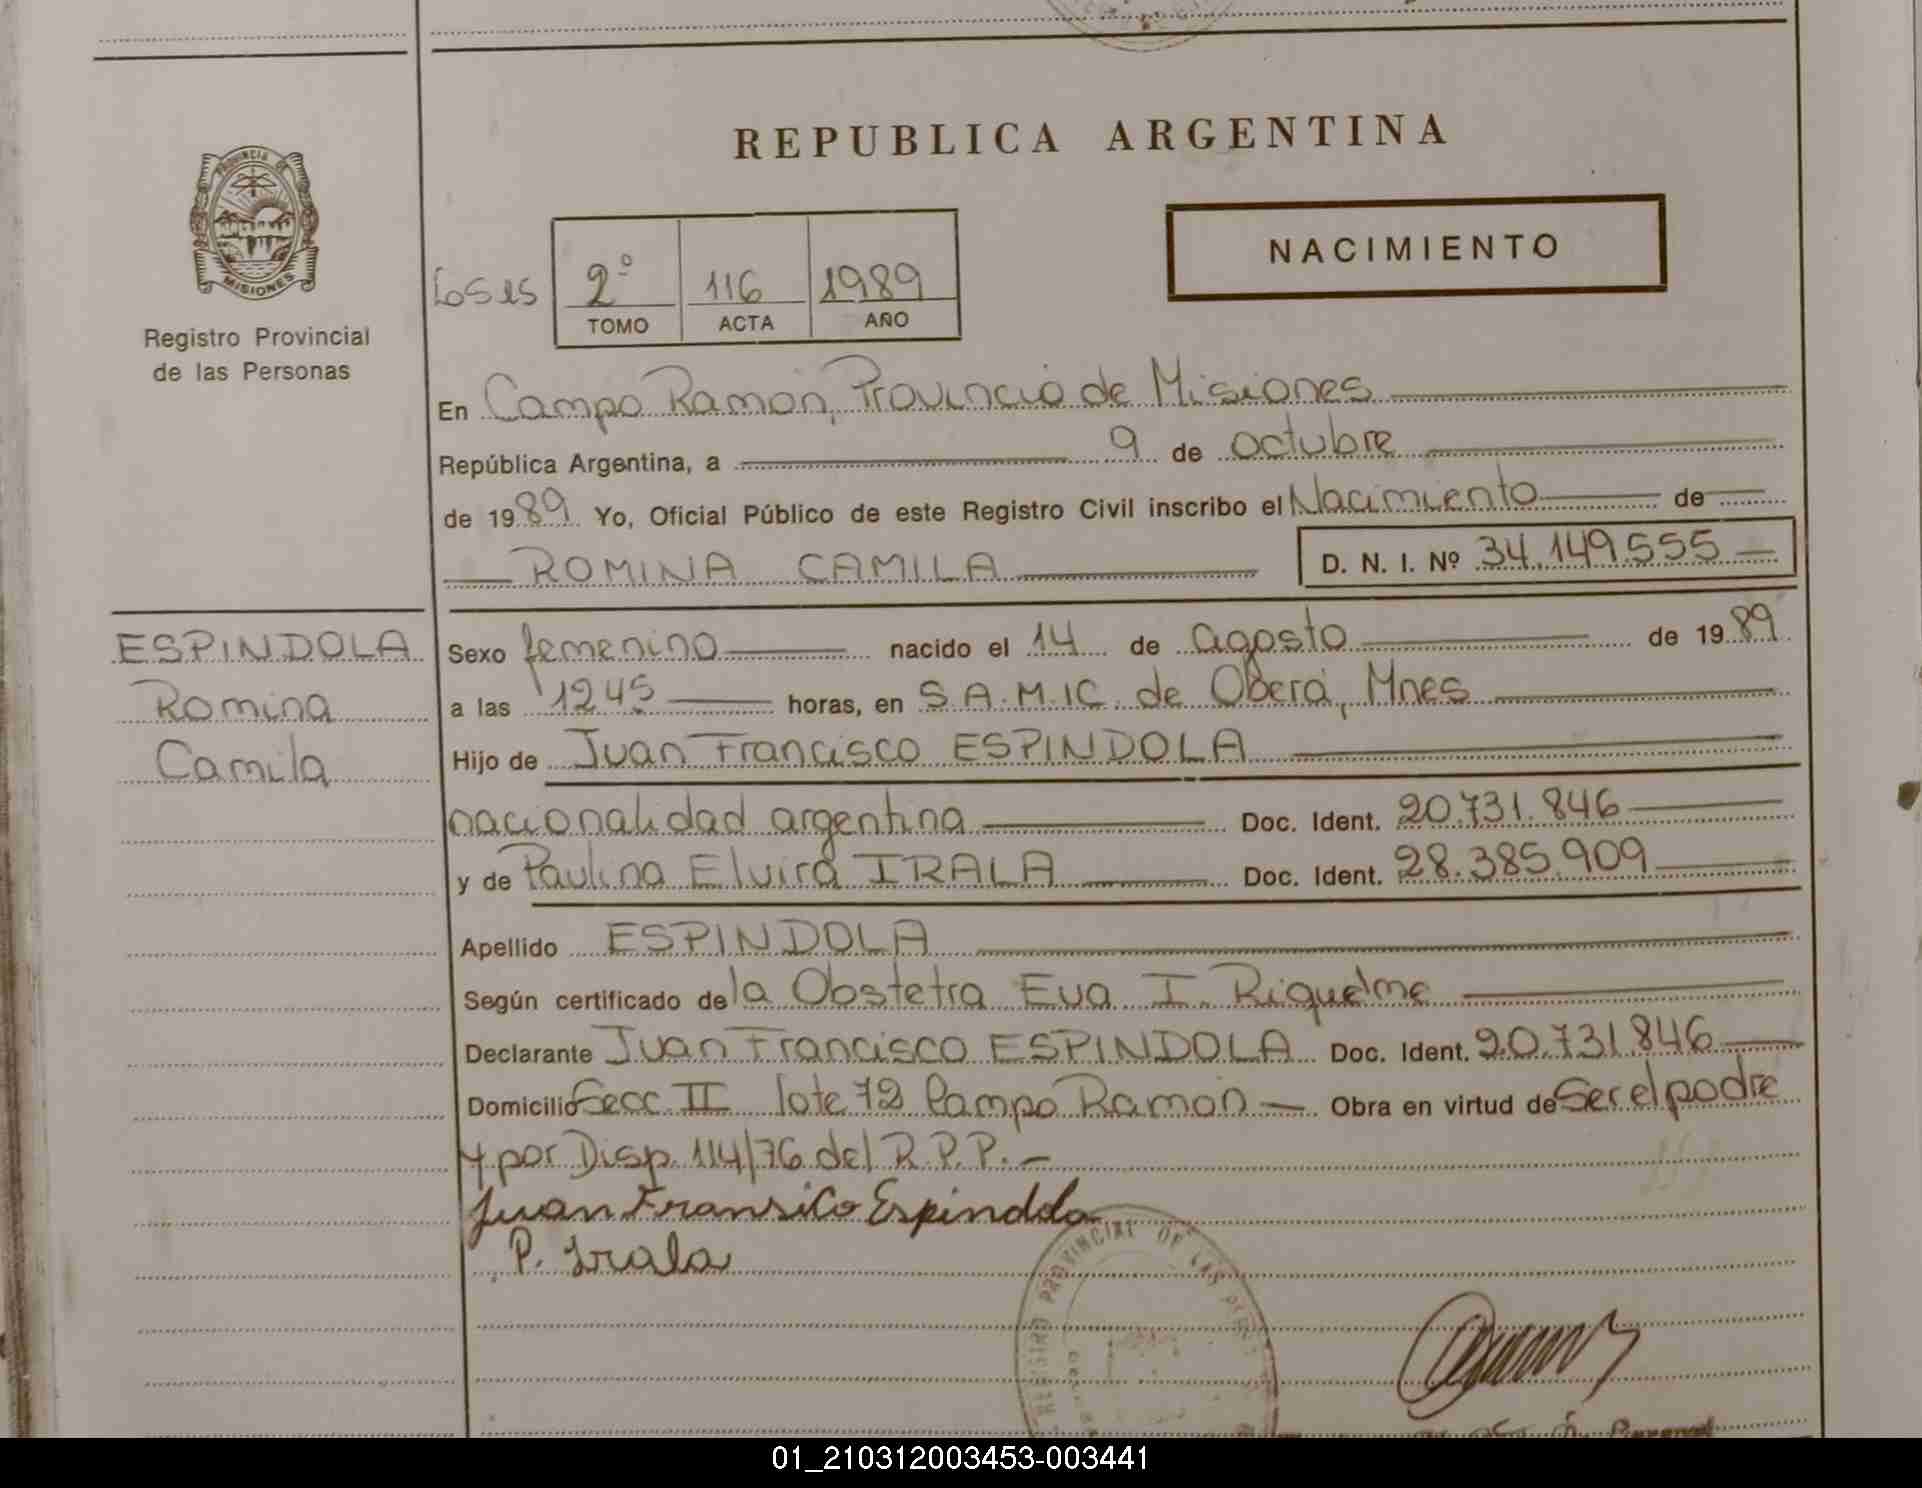 REPUBLICA ARGENTINA
PROVINCIA DE
MISIONES
Registro Provincial
de las Personas
NACIMIENTO
2º 116 1989
TOMO ACTA AÑO
En Campo Ramon, Provincia de Misiones
República Argentina, a 9 de octubre
de 1989 Yo, Oficial Público de este Registro Civil inscribo el Nacimiento de
ROMINA CAMILA D. N. I. Nº 34.149.555
ESPINDOLA
Romina
Camila
Sexo femenino nacido el 14 de agosto de 1989
a las 1245 horas, en S.A.M.I.C. de Oberá, Mnes
Hijo de Juan Francisco ESPINDOLA
nacionalidad argentina Doc. Ident. 20.731.846
y de Paulina Elvira IRALA Doc. Ident. 28.385.909
Apellido ESPINDOLA
Según certificado de la Obstetra Eva I. Riquelme
Declarante Juan Francisco ESPINDOLA Doc. Ident. 20.731.846
Domicilio Secc II lote 72 Campo Ramon Obra en virtud de Ser el padre
y por Disp. 114/76 del R.P.P.
Juan Fransico Espindola
P. Irala
REGISTRO PROVINCIAL DE LAS
01_210312003453-003441